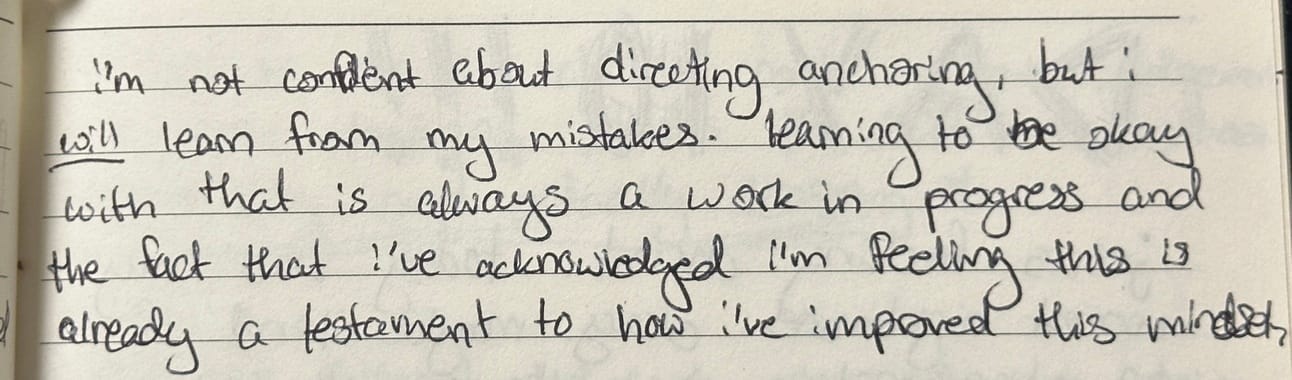 i'm not confident about directing anchoring, but i
will learn from my mistakes. learning to be okay
with that is always a work in progress and
the fact that i've acknowledged i'm feeling this is
already a testament to how i've improved this mindset,